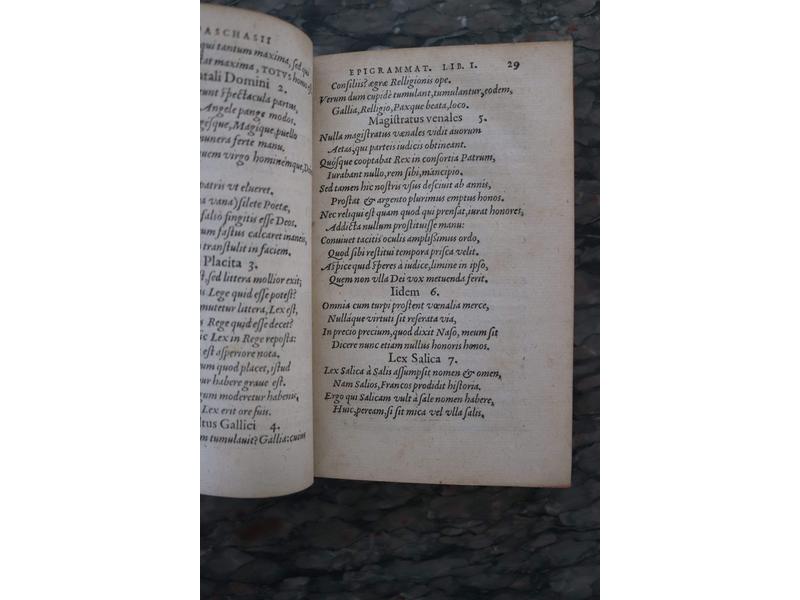 PASCHASII
qui tantum maxima, sed qui
at maxima, TOTVS honos
atali Domini 2.
runt spectacula partus,
Angele pange modos.
gesque, Magique, puello
munera ferte manu.
uem virgo hominémque,
patris vt elueret.
a vana) silete Poetæ,
salio fingitis esse Deos.
um fastus calcaret inaneis,
transtulit in faciem.
Placita 3.
st, sed littera mollior exit;
Lege quid esse potest?
mutetur littera, Lex est,
Rege quid esse decet?
ic Lex in Rege reposta:
est asperiore nota.
um quod placet, istud
tur habere graue est.
gum moderetur habenis,
Lex erit ore suis.
ltus Gallici 4.
m tumulauit? Gallia: cuius
EPIGRAMMAT. LIB. I. 29
Consiliis? ægræ Relligionis ope.
Verum dum cupidè tumulant, tumulantur, eodem,
Gallia, Relligio, Paxque beata, loco.
Magistratus venales 5.
Nulla magistratus vænales vidit auorum
Aetas, qui parteis iudicis obtineant.
Quósque cooptabat Rex in consortia Patrum,
Iurabant nullo, rem sibi, mancipio.
Sed tamen hic nostris vsus desciuit ab annis,
Prostat & argento plurimus emptus honos.
Nec reliqui est quam quod qui prensat, iurat honores,
Addicta nullum prostituisse manu:
Conniuet tacitis oculis amplissimus ordo,
Quod sibi restitui tempora prisca velit.
Aspice quid speres à iudice, limine in ipso,
Quem non vlla Dei vox metuenda ferit.
Iidem 6.
Omnia cum turpi prostent vænalia merce,
Nulláque virtuti sit referata via,
In precio precium, quod dixit Naso, meum sit
Dicere nunc etiam nullus honoris honos.
Lex Salica 7.
Lex Salica à Salis assumpsit nomen & omen,
Nam Salios, Francos prodidit historia.
Ergo qui Salicam vult à sale nomen habere,
Huic, peream, si sit mica vel vlla salis.